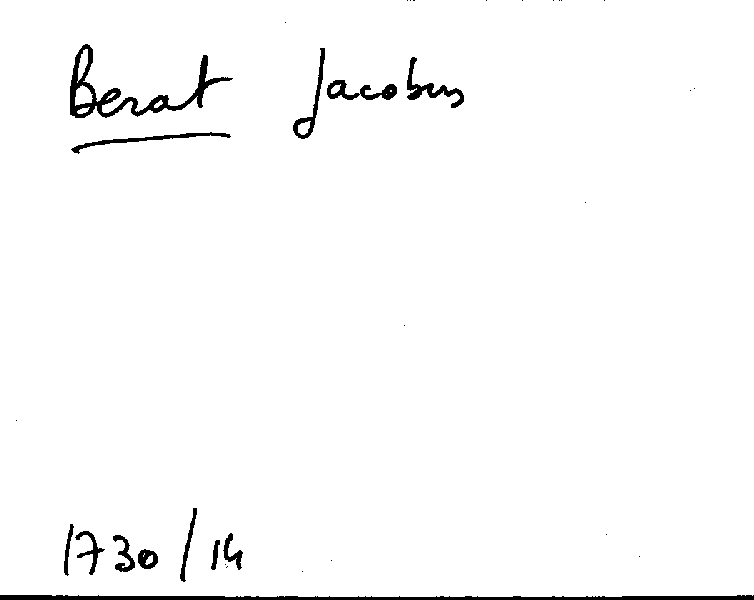 Berat Jacobus
1730/14